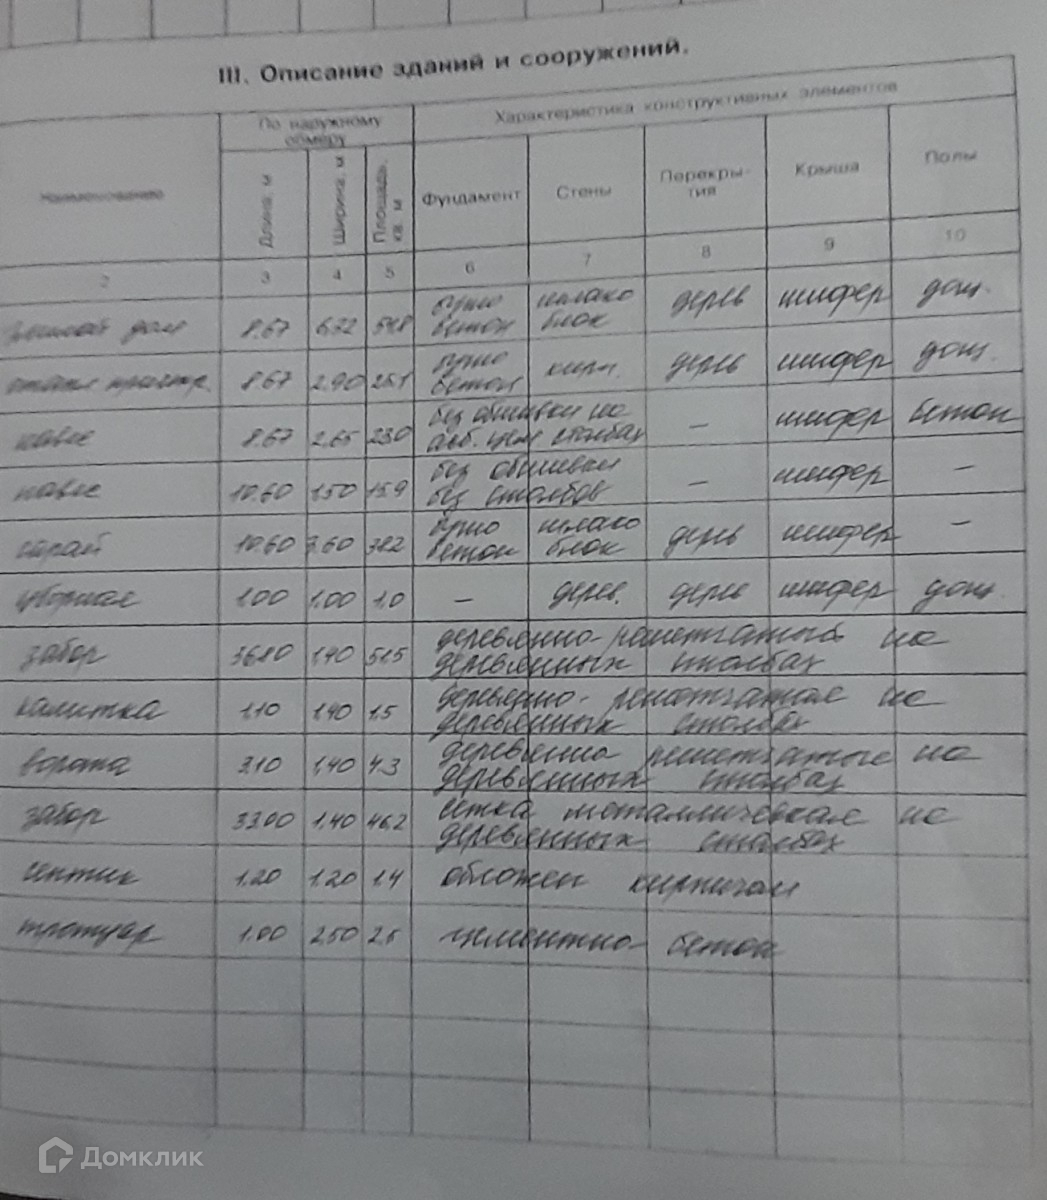 III. Описание зданий и сооружений.
Наименование
По наружному обмеру
Характеристика конструктивных элементов
Длина, м
Ширина, м
Площадь, кв. м
Фундамент
Стены
Перекры-
тия
Крыша
Полы
2 3 4 5 6 7 8 9 10
жилой дом 8.67 6.32 54.8 бутобетон шлакоблок дерев шифер дощ.
8.67 2.90 25.1 бутобетон кирп. дерев шифер дощ.
навес 8.67 2.65 23.0 без обшивки на асб. цем столбах — шифер бетон
навес 10.60 1.50 15.9 без обшивки без столбов — шифер —
сарай 10.60 3.60 38.2 бутобетон шлакоблок дерев шифер —
уборная 1.00 1.00 1.0 — дерев. дерев шифер дощ.
забор 36.80 1.40 51.5 деревянно-решетчатый на
деревянных столбах
калитка 1.10 1.40 1.5 деревянно-решетчатая на
деревянных столбах
ворота 3.10 1.40 4.3 деревянно решетчатые на
деревянных столбах
забор 33.00 1.40 46.2 сетка металлическая на
деревянных столбах
септик 1.20 1.20 1.4 обложен кирпичом
тротуар 1.00 2.50 2.5 цементно-бетон
Домклик